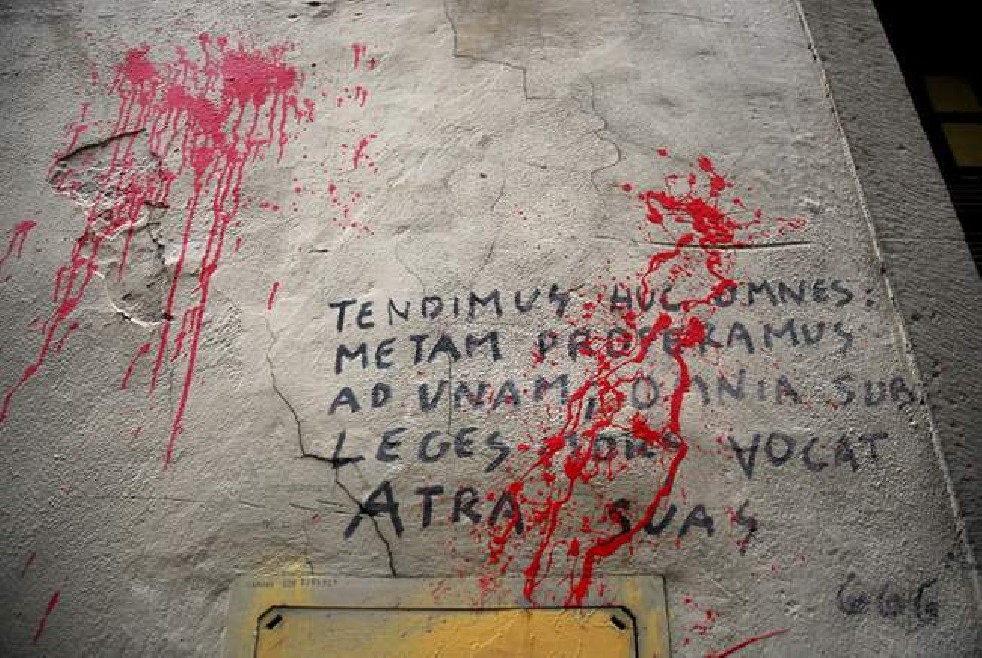 TENDIMUS HUC OMNES:
METAM PROPERAMUS
AD UNAM, OMNIA SUB
LEGES MORS VOCAT
ATRA SUAS
666